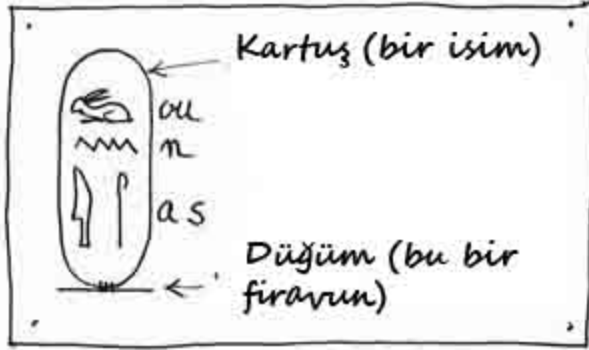 Kartuş (bir isim)
ou
n
as
Düğüm (bu bir
firavun)